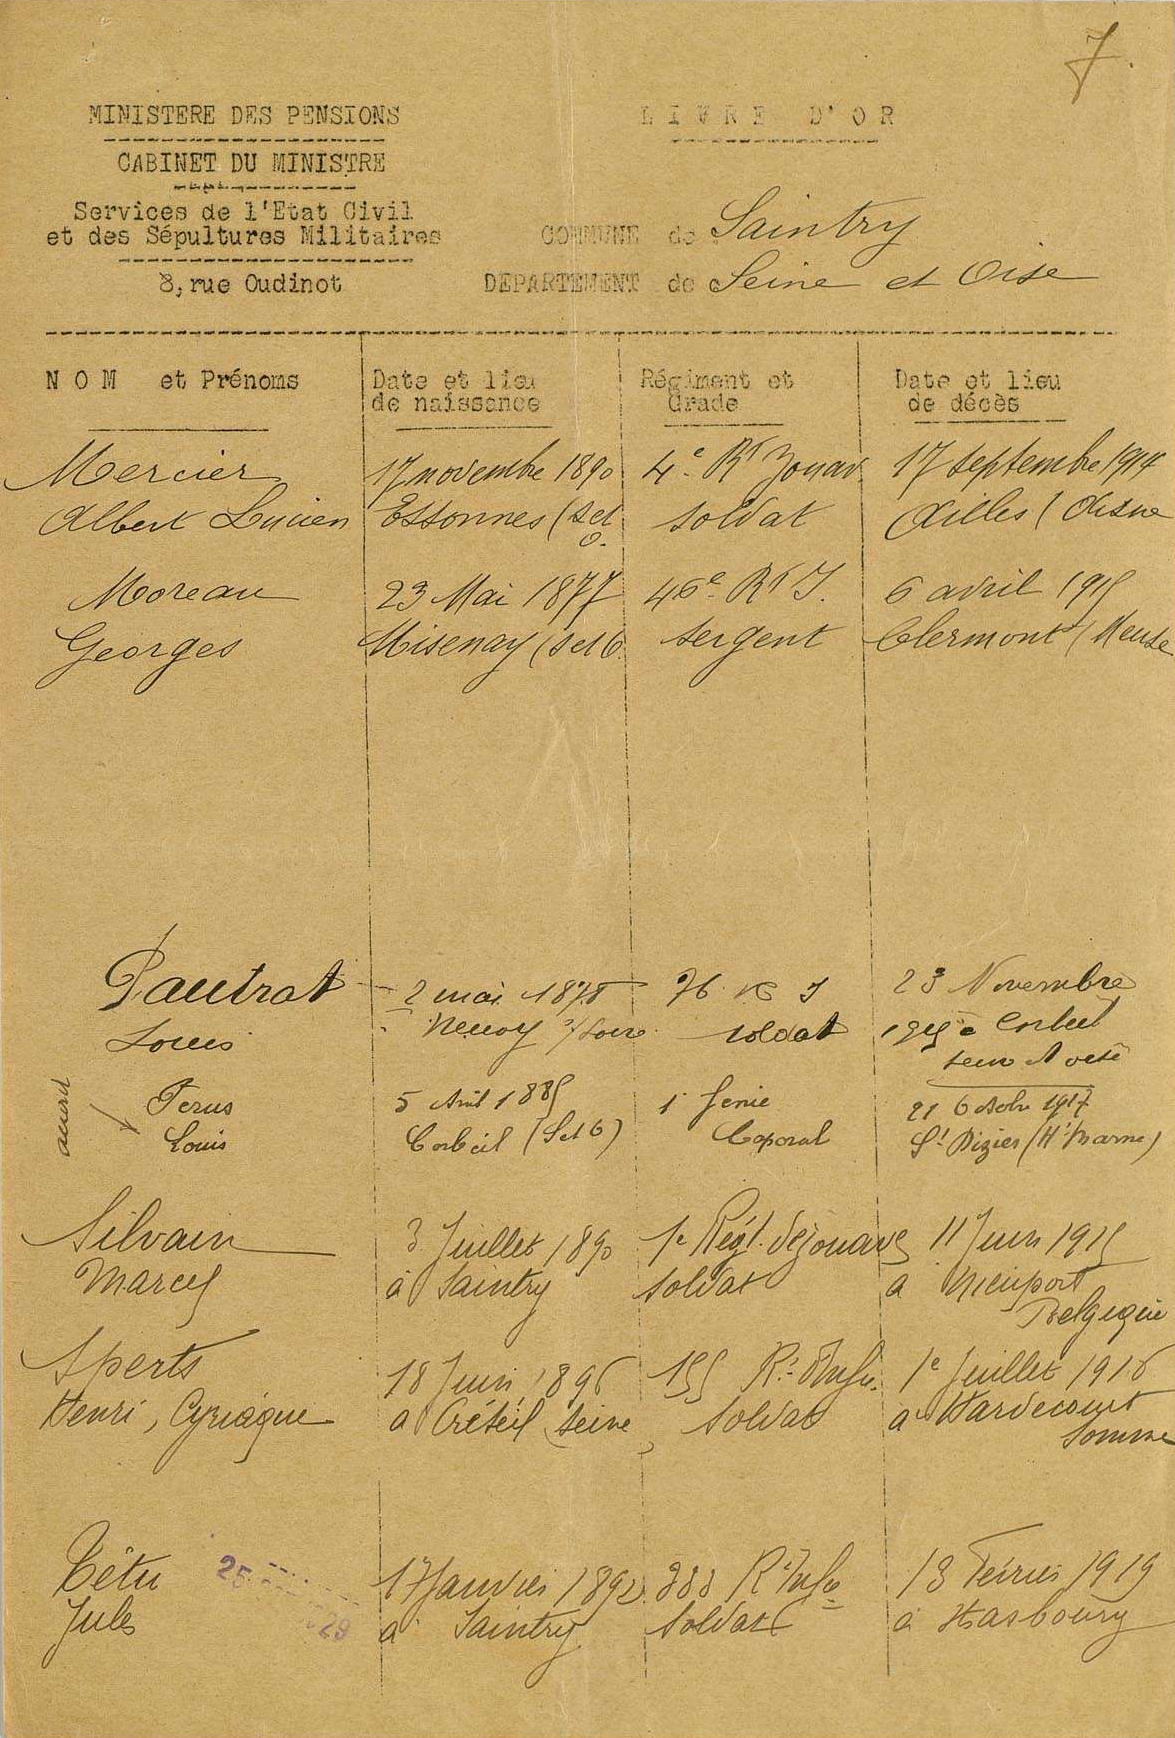 7.
MINISTERE DES PENSIONS
CABINET DU MINISTRE
Services de l'Etat Civil
et des Sépultures Militaires
8, rue Oudinot
LIVRE D'OR
COMMUNE de Saintry
DEPARTEMENT de Seine et Oise
NOM et Prénoms
Date et lieu
de naissance
Régiment et
Grade
Date et lieu
de décès
Mercier
Albert Lucien
17 novembre 1890
Essonnes (S et
O.
4e Rt Zouav.
soldat
17 septembre 1914
Ailles (Aisne
Moreau
Georges
23 Mai 1877
(S et O.
46e Rt I.
sergent
6 avril 1915
Clermont (Meuse
Pautrat
Louis
2 mai 1878
Neuvy s/Loire
76 R I
soldat
23 Novembre
1915 à Corbeil
Seine et Oise
avant
Perus
Louis
5 Avril 1885
Corbeil (S et O)
1 Génie
Caporal
21 Octobre 1917
St Dizier (Hte Marne)
Silvain
Marcel
3 Juillet 1890
à Saintry
1e Régt. de Zouaves
soldat
11 Juin 1915
à Nieuport
Belgique
Sperts
Henri, Cyriaque
18 Juin 1896
à Créteil Seine
155 Rt Infie.
soldat
1e Juillet 1916
à Hardecourt
Somme
Têtu
Jules
25 29
17 Janvier 1892
à Saintry
Rt Infie
soldat
13 Février 1919
à Strasbourg